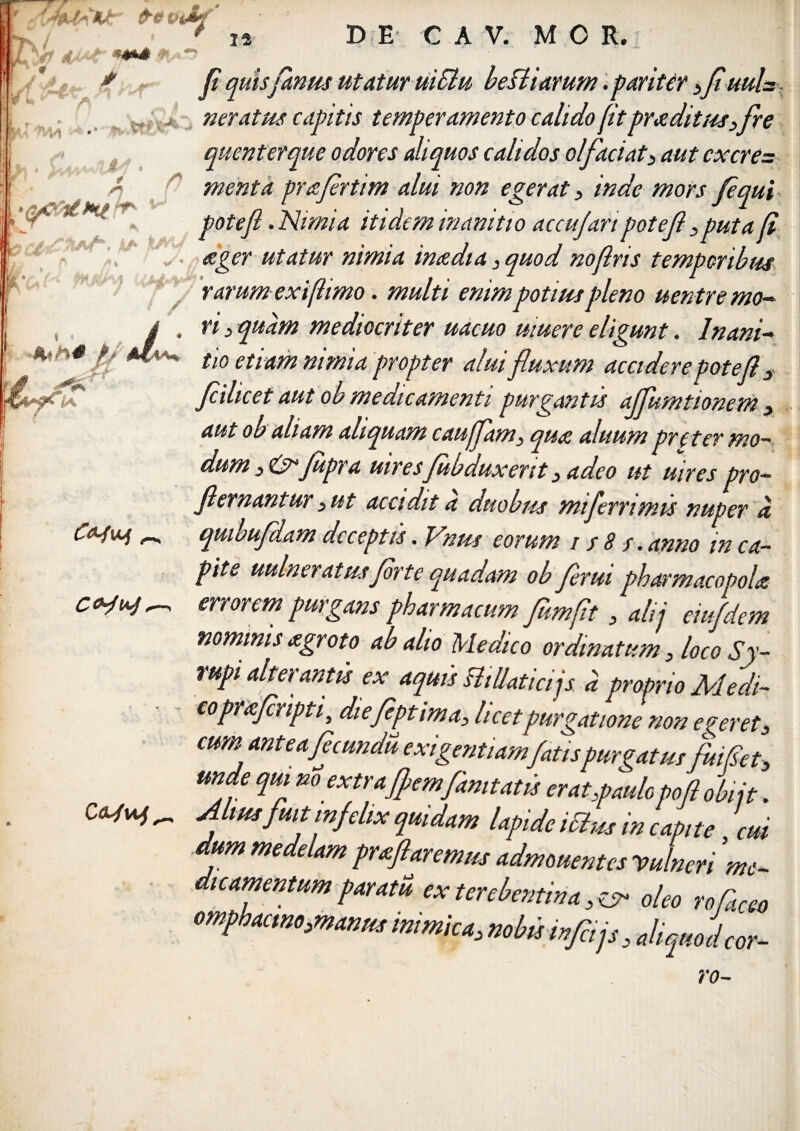 12 DE CAV. MOR.
si quis sanus utatur uictu bestiarum. pariter, si uul=
neratus capitis temperamento calido sit præditus, fre
quenterque odores aliquos calidos olfaciat, aut excre=
menta præsertim alui non egerat, inde mors sequi
potest. Nimia itidem inanitio accusari potest, puta si
æger utatur nimia inædia, quod nostris temporibus
rarum existimo. multi enim potius pleno uentre mo-
ri, quàm mediocriter uacuo uiuere eligunt. Inani-
tio etiam nimia propter alui fluxum accidere potest,
scilicet aut ob medicamenti purgantis assumtionem,
aut ob aliam aliquam caussam, quæ aluum pręter mo-
dum, & supra uires subduxerit, adeo ut uires pro-
sternantur, ut accidit à duobus miserrimis nuper à
Casus quibusdam deceptis. Vnus eorum 1585. anno in ca-
pite uulneratus forte quadam ob serui pharmacopolæ
Casus errorem purgans pharmacum sumsit, alij eiusdem
nominis ægroto ab alio Medico ordinatum, loco Sy-
rupi alterantis ex aquis stillaticijs à proprio Medi-
co præscripti, die septima, licet purgatione non egeret,
cum antea secundū exigentiam satis purgatus fuisset,
unde qui nō extra spem sanitatis erat, paulo post obijt.
Casus Alius fuit infelix quidam lapide ictus in capite, cui
dum medelam præstaremus admouentes vulneri me-
dicamentum paratū ex terebentina, & oleo rosaceo
omphacino, manus inimica, nobis inscijs, aliquod cor-
ro-